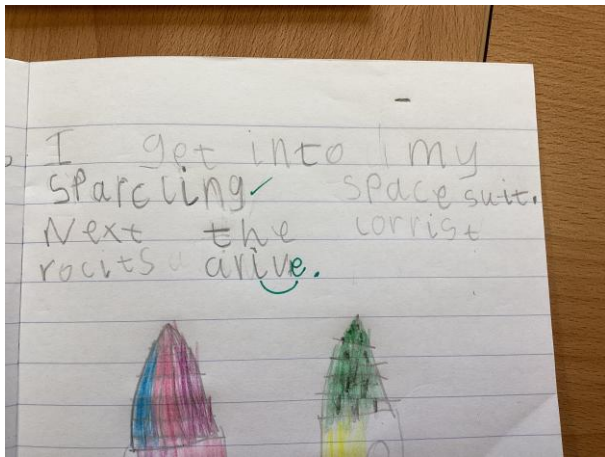 I get into my
Sparcling space suit.
Next the corrist
rocits arive.